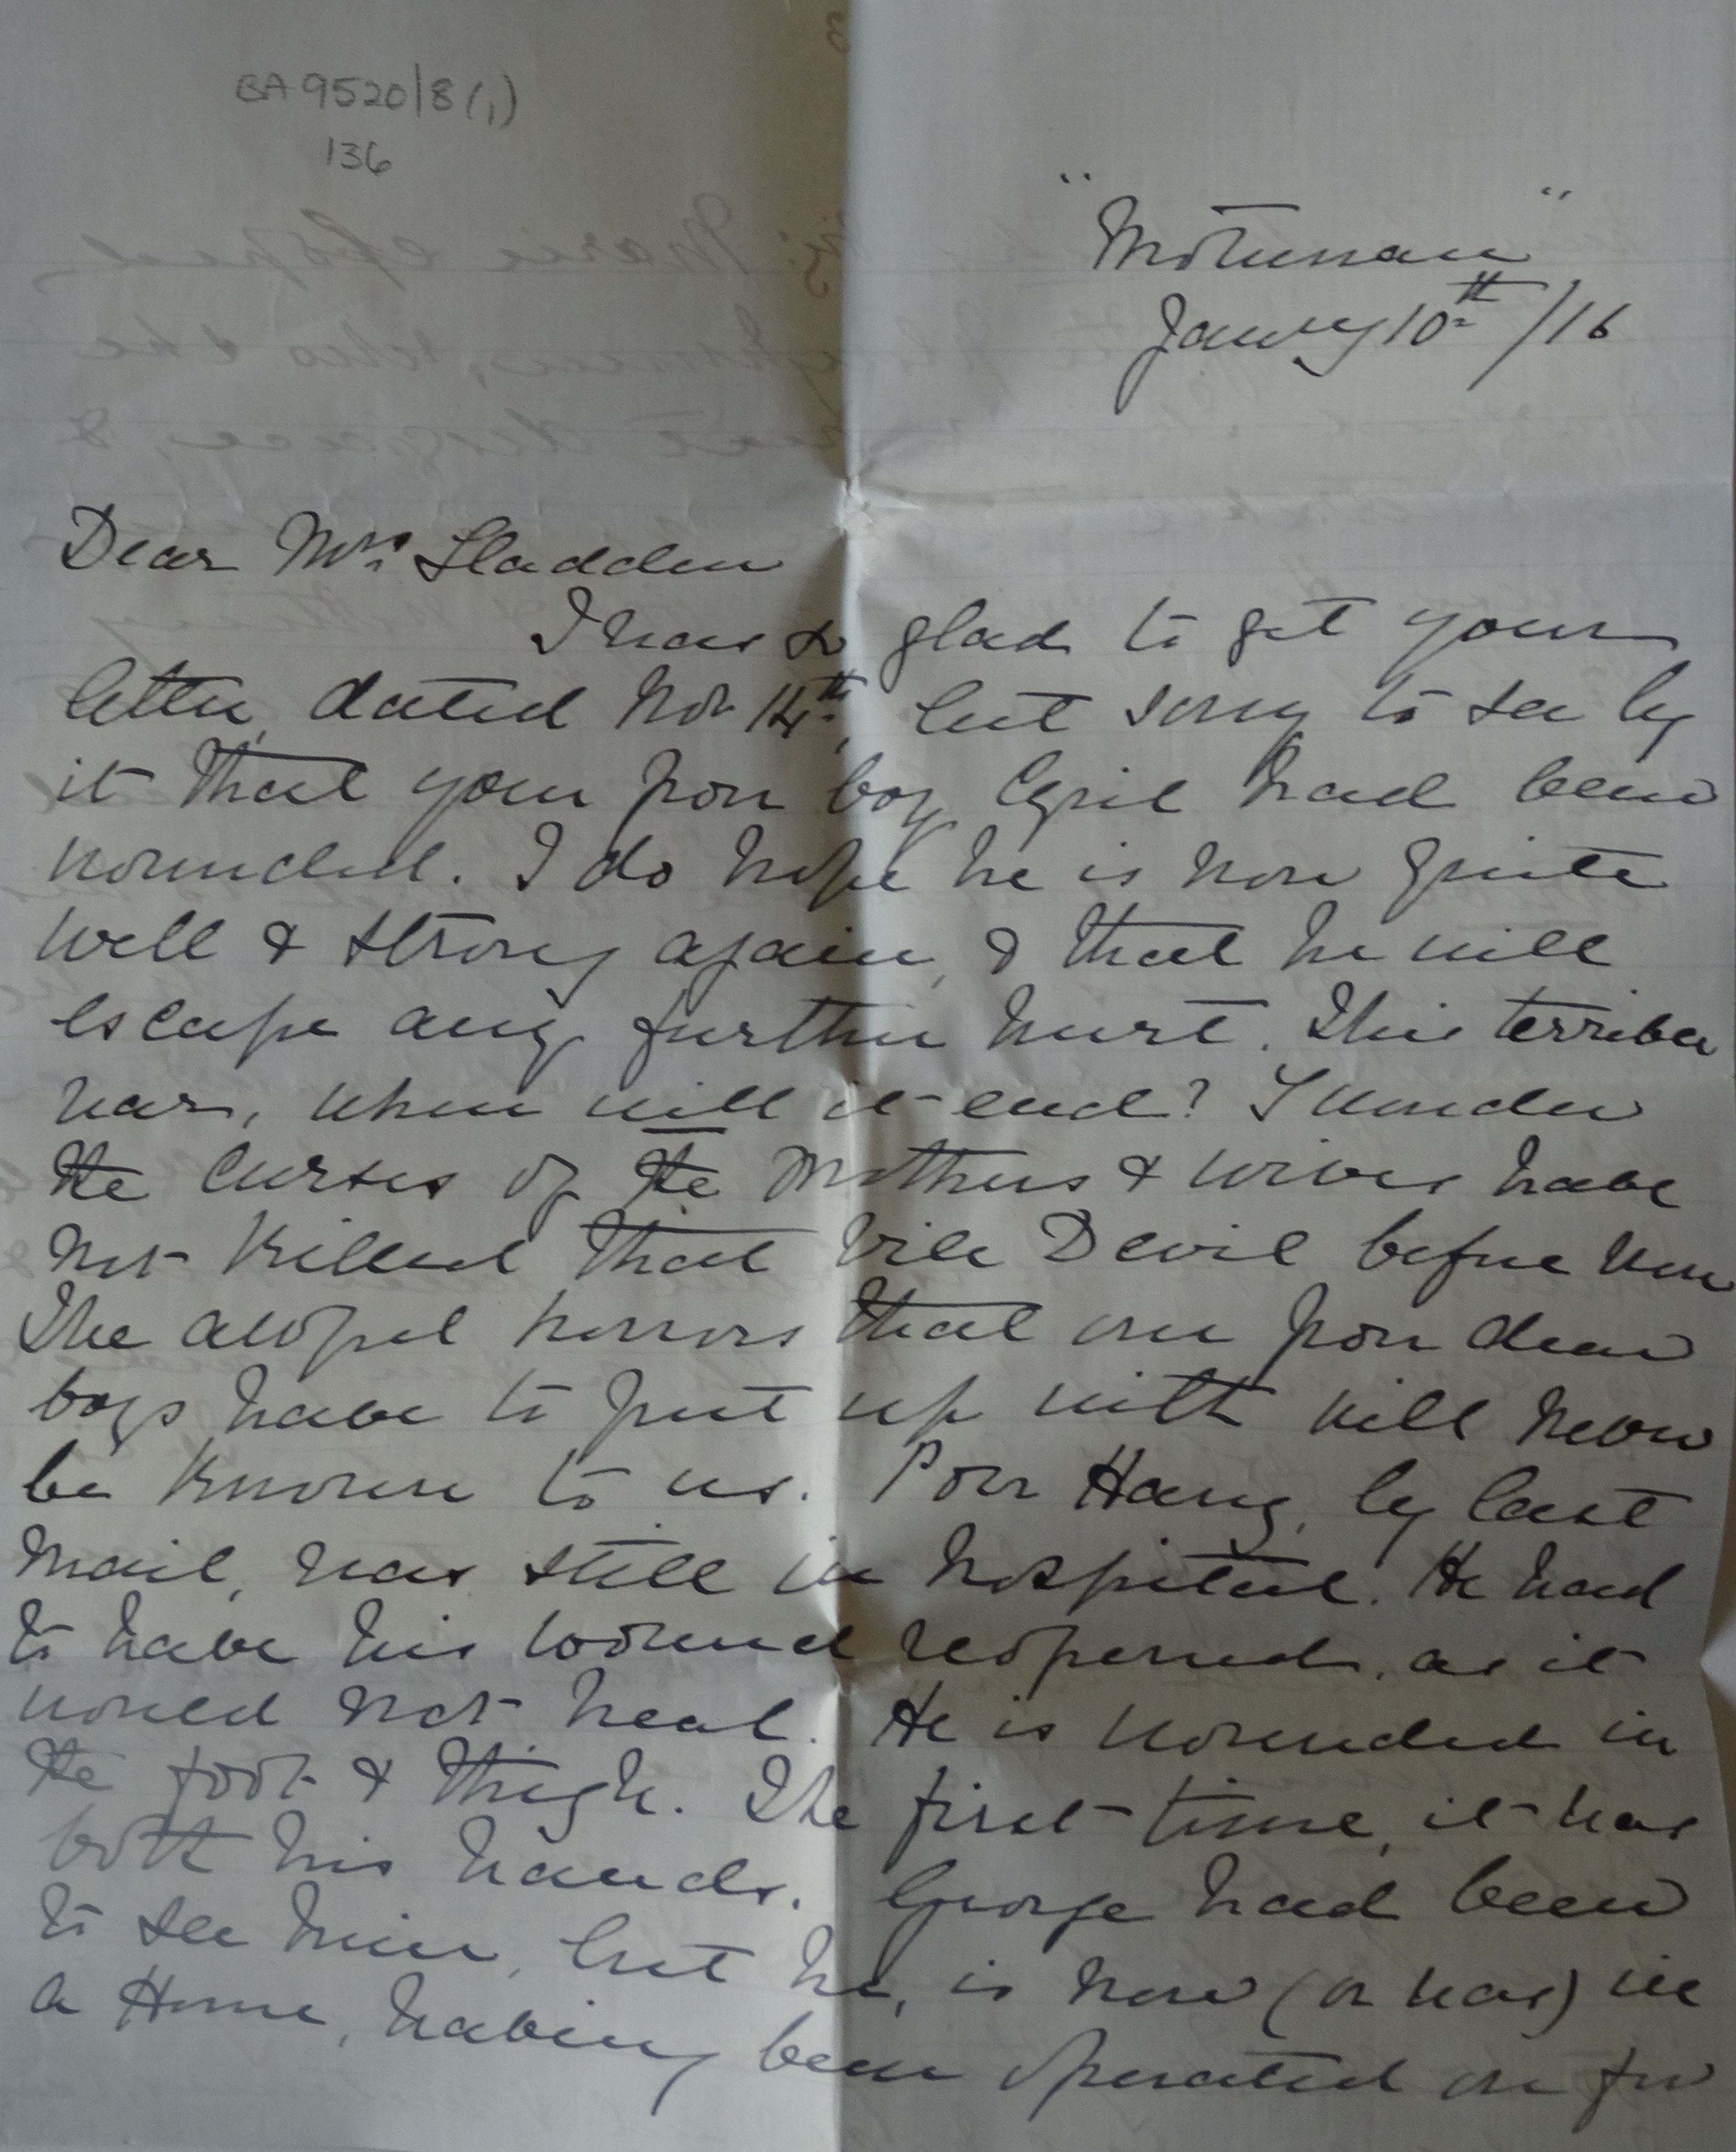 BA 9520/8(1)
136
January 10th /16
Dear Mrs Sladden
I was so glad to get your
letter, dated Nov 14th, but sorry to see by
it that your poor boy Cyril had been
wounded. I do hope he is now quite
well & strong again, & that he will
escape any further hurt. This terrible
war, when will it end? I wonder
the curses of the Mothers & wives have
not killed that vile Devil before now
The awful horrors that our poor dear
boys have to put up with will never
be known to us. Poor Harry, by last
mail, was still in hospital. He had
to have his wound reopened, as it
would not heal. He is wounded in
the foot & thigh. The first time, it was
both his hands. George had been
to see him, but he, is now (or was) in
a Home, having been operated on for